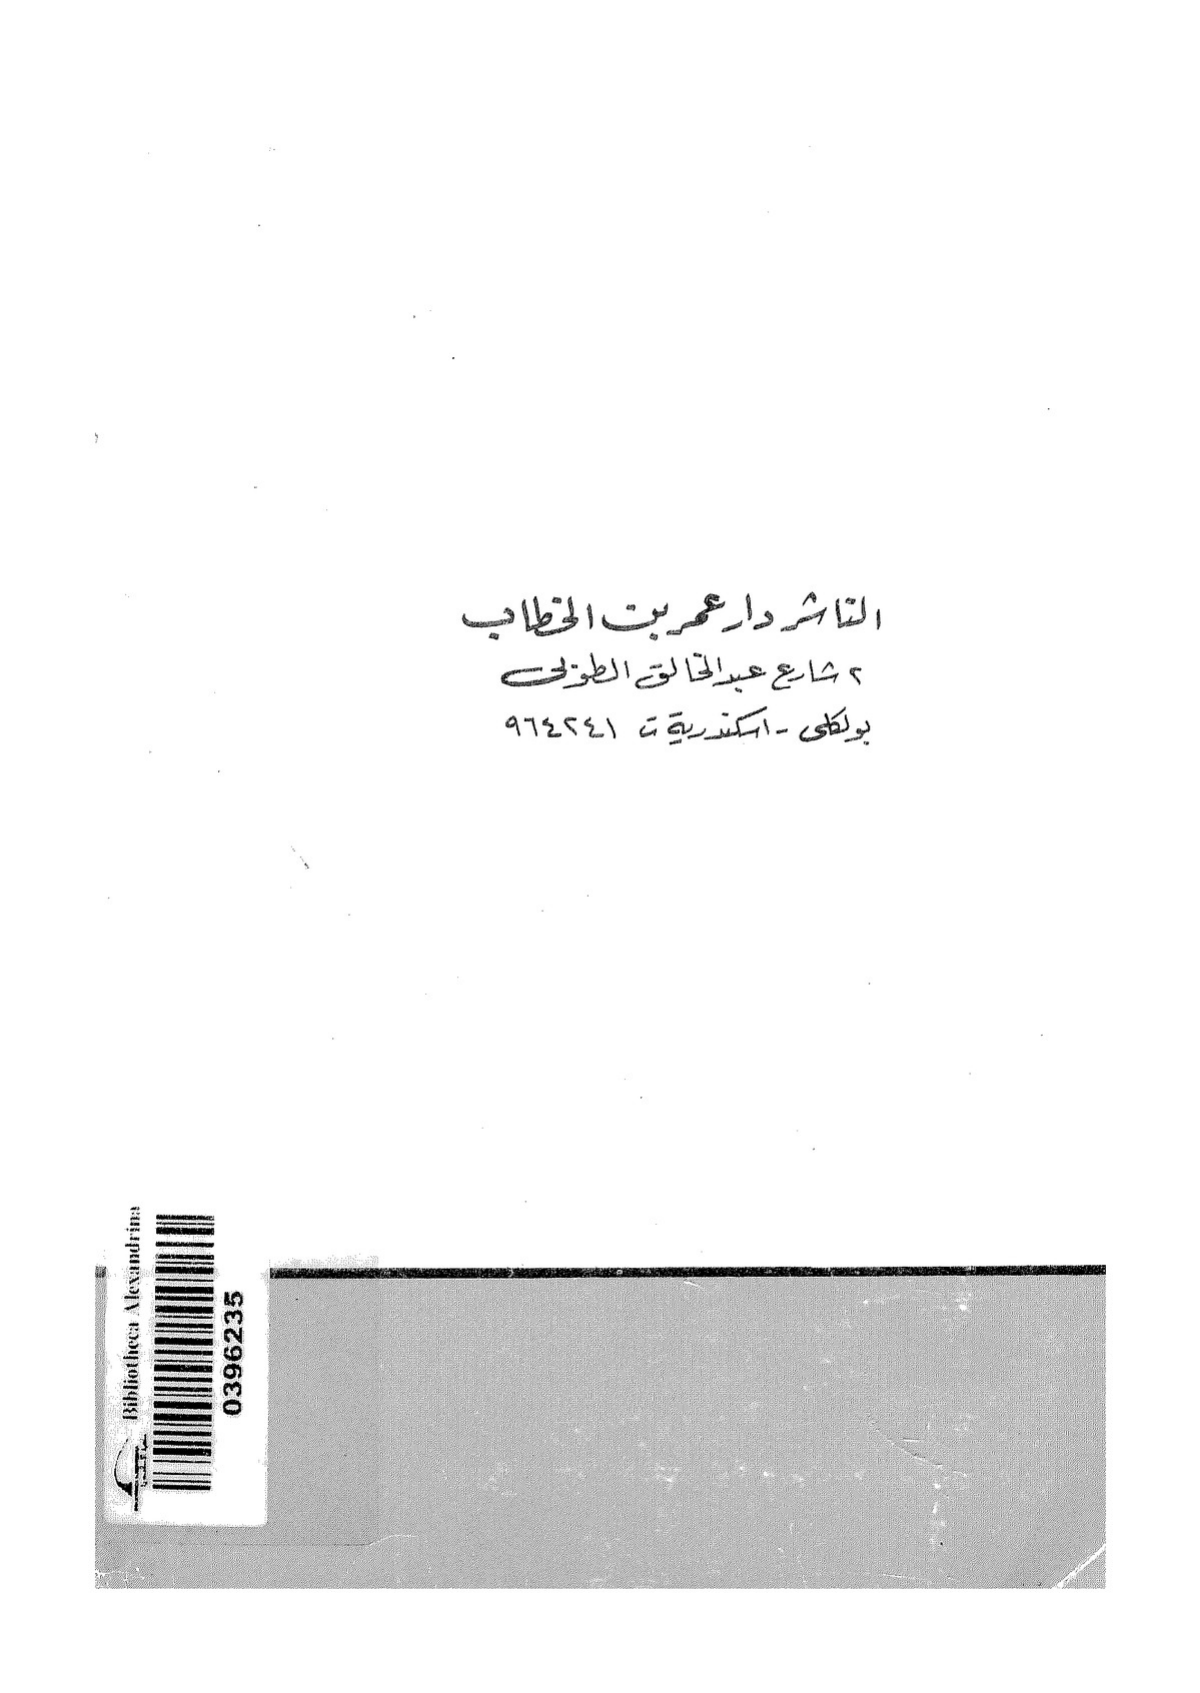 الناشر دار عمر بن الخطاب
٢ شارع عبد الخالق الطوبى
بولكلى - اسكندرية ت ٩٦٤٢٤١
Bibliotheca Alexandrina
0396235